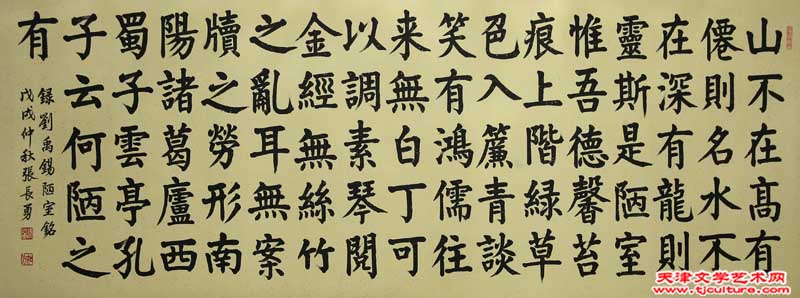 山不在高有
僊則名水不
在深有龍則
靈斯是陋室
惟吾德馨苔
痕上階緑草
色入簾青談
笑有鴻儒往
来無白丁可
以調素琴閱
金經無絲竹
之亂耳無案
牘之勞形南
陽諸葛廬西
蜀子雲亭孔
子云何陋之
有
錄劉禹錫陋室銘
戊戌仲秋張長勇
天津文学艺术网
www.tjculture.com